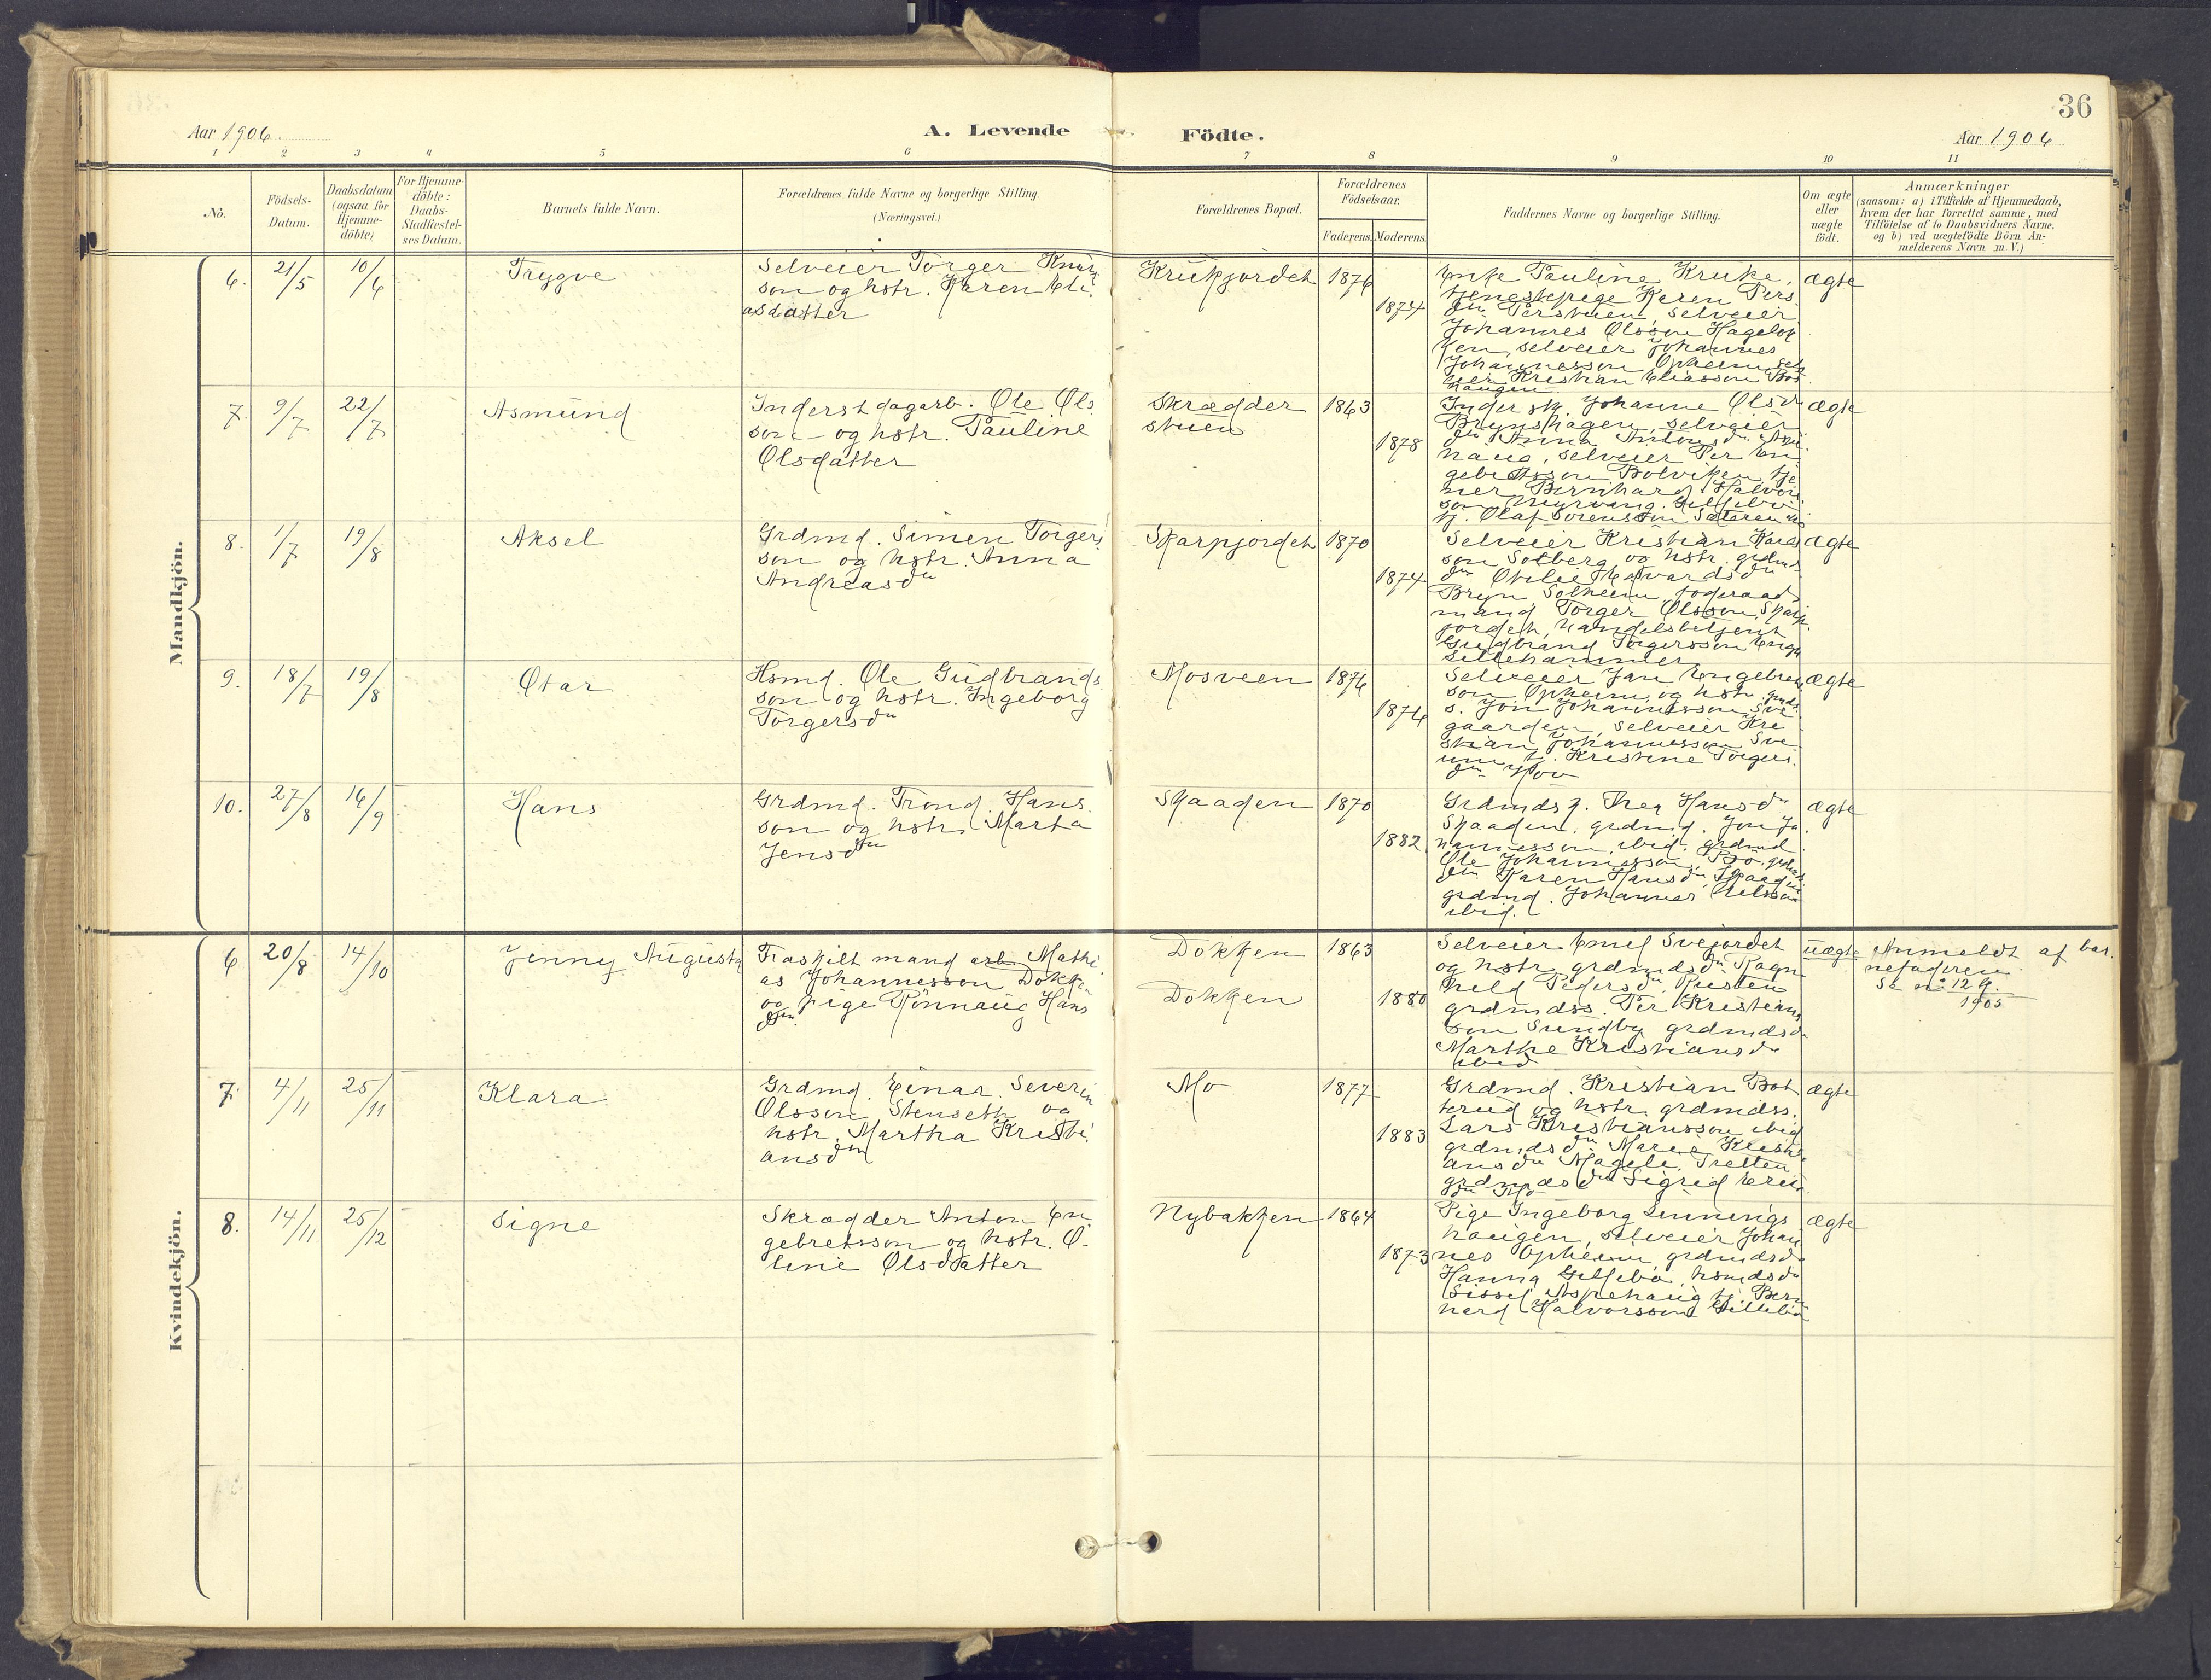 36
Aar 1906.
A. Levende Födte.
Aar 1906
1 2 3 4 5 6 7 8 9 10 11
No.
Födsels-
Datum.
Daabsdatum
(ogsaa for
Hjemme-
döbte)
For Hjemme-
döbte:
Daabs-
Stadfæstel-
ses Datum.
Barnets fulde Navn.
Forældrenes fulde Navne og borgerlige Stilling.
(Næringsvei.)
Forældrenes Bopæl.
Forældrenes
Födselsaar.
Faderens. Moderens.
Faddernes Navne og borgerlige Stilling.
Om ægte
eller
uægte
födt.
Anmærkninger
(saasom: a) i Tilfælde af Hjemmedaab,
hvem der har forrettet samme, med
Tilföielse af to Daabsvidners Navne.
og b) ved uægtefödte Börn An-
melderens Navn m. V.)
Mandkjön.
6. 21/5 10/6 Trygve
Selveier Torger Knut
son og hstr. Karen Eli
asdatter
Krukjordet 1876
1874
Enke Pauline Kruke,
tjenestepige Karen Pers
dtr Persveen, selveier
Johannes Olsson Hagelok
ken, selveier Johannes
Johannesson Opheim, selv
eier Kristian Eliasson Bos
haugen
ægte
7. 9/7 22/7 Asmund
Inderst dagarb. Ole Ols
son og hstr. Pauline
Olsdatter
Skrædder
stuen
1863
1878
Inderst. Johanne Olsdr
Brynshagen, selveier
dtr Anna Antonsdr
haug, selveier Per En
gebretsson Bolviken, tje
ner Bernhard Halvor
son
tj. Olaf Sorensson Sæteren
ægte
8. 1/7 19/8 Aksel
Grdmd. Simen Torgers
son og hstr. Anna
Andreasdtr
Skarpjordet 1870
1874
Selveier Kristian Hans
son Solberg og hstr. grdmds
dtr Otilie Edvardsdtr
Bryn Solheim, foderaads
mand Torger Olsson Skarp
jordet, handelsbetjent
Gudbrand Torgersson Enge
Lillehammer
ægte
9. 18/7 19/8 Otar
Hsmd. Ole Gudbrands
son og hstr. Ingeborg
Torgersdtr
Mosveen 1876
1874
Selveier Jan Engebret
son Opheim og hstr. grdmd
s. Jon Johannesson Sve
gaarden, selveier Kri
stian Johannesson Sve
um tj. Kristine Torgers
dtr Hov
ægte
10. 27/8 16/9 Hans
Grdmd. Trond Hans
son og hstr. Marta
Jensdtr
Skaaden 1870
1882
Grdmds p. Thea Hansdtr
Skaaden, grdmd. Jon Jo
hannesson ibid. grdmd
Ole Johannesson Bø. grdmds
dtr Karen Hansdtr Skaaden
grdmd. Johannes Nilsson
ibid.
ægte
Kvindekjön.
6 20/8 14/10 Jenny Augusta
Fraskilt mand arb. Mathi
as Johannesson Dokken
og pige Rönnaug Hans
dtr.
Dokken 1863
Dokken 1880
Selveier Emil Svejordet
og hstr. grdmdsdtr Ragn
hild Pedersdtr Rusten
grdmdss. Per Kristians
son Sundby grdmdsdr
Marthe Kristiansdr
ibid
uægte
Anmeldt af bar
nefaderen
Se no 12 g.
1905
7. 4/11 25/11 Klara
Grdmd. Einar Severin
Olsson Stenseth og
hstr. Martha Kristi
ansdtr
Mo 1877
1883
Grdmd. Kristian Bot
terud og hstr. grdmdss.
Lars Kristiansson ibid
grdmdsdtr Marie Kristi
ansdtr Magele, Tretten
grdmdsdtr Sigrid
dtr Mo
ægte
8. 14/11 25/12 Signe
Skrædder Anton En
gebretsson og hstr. O-
line Olsdatter
Nybakken 1864
1873
Pige Ingeborg Linnerigs
haugen, selveier Johan
nes Opheim, grdmdsdr
Hanna Gillebo, hsmdsdtr
Sissel Aspehaug tj. Bern
hard Halvorsson Gillebo
ægte